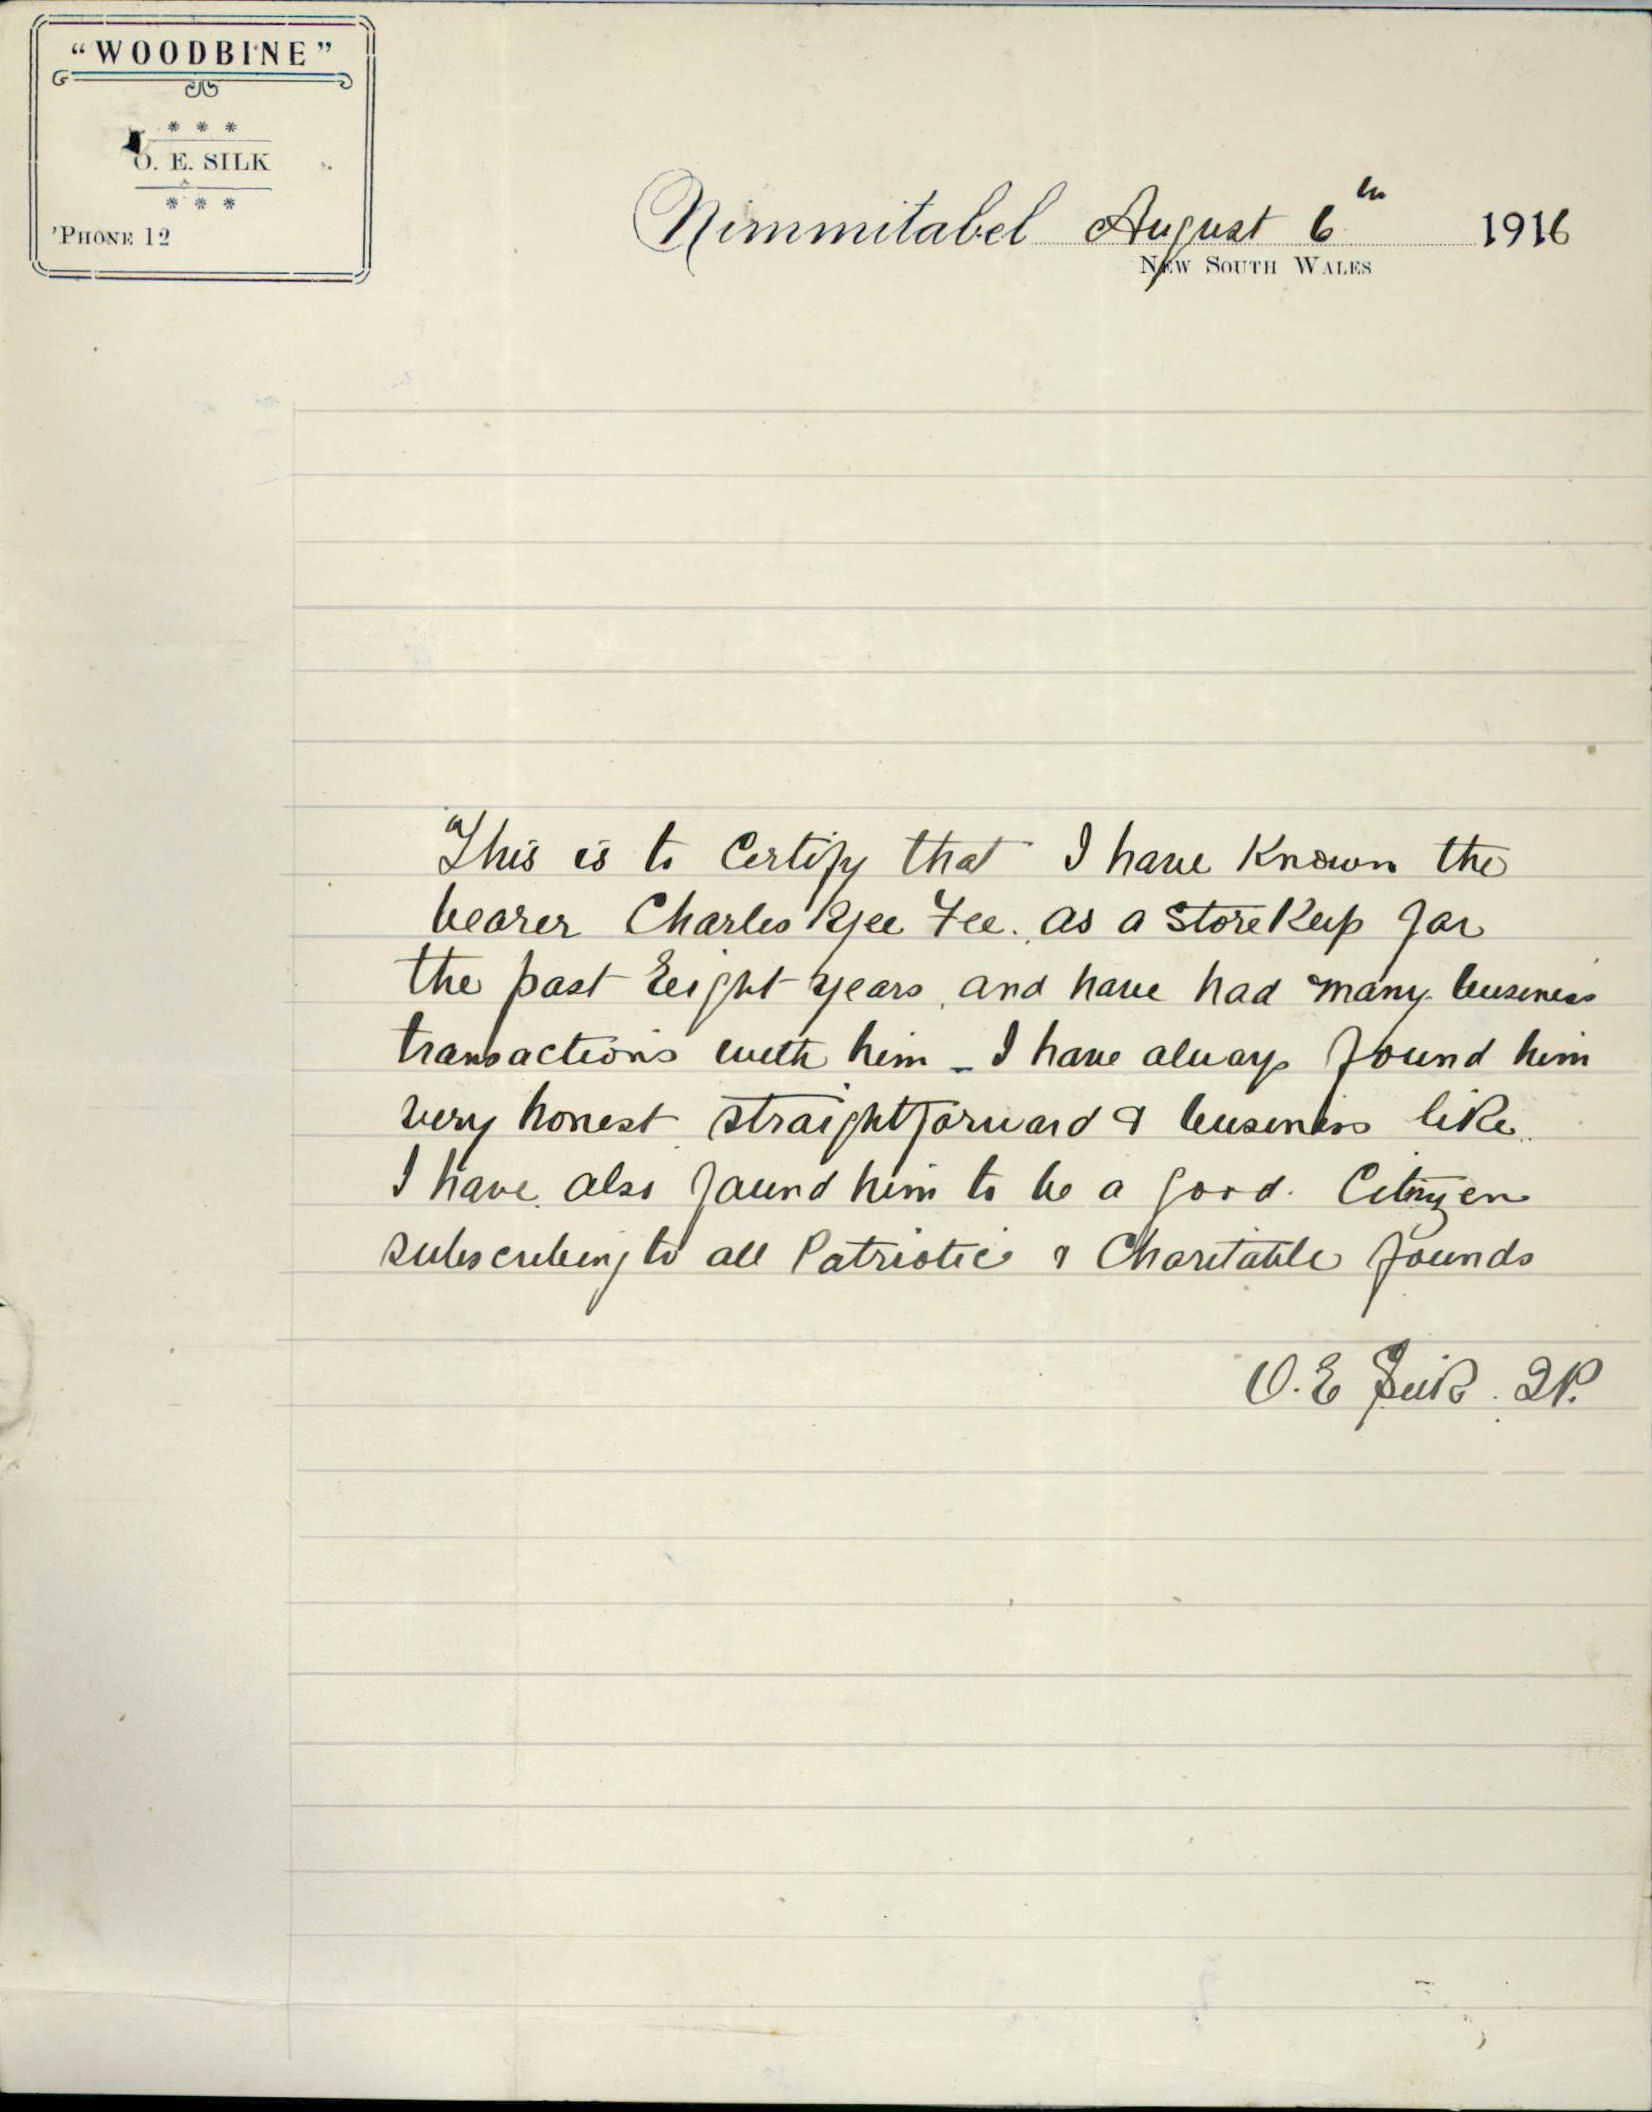 “WOODBINE”
* * *
O. E. SILK
* * *
’PHONE 12
Nimmitabel August 6th 1916
NEW SOUTH WALES
This is to Certify that I have Known the
bearer Charles Yee Fee. as a StoreKeep for
the past Eeight years, and have had many business
transactions with him _ I have always found him
very honest straightforward & business like
I have also found him to be a good. Citizen
subscribing to all Patriotic & Charitable founds
O. E Silk. JP.